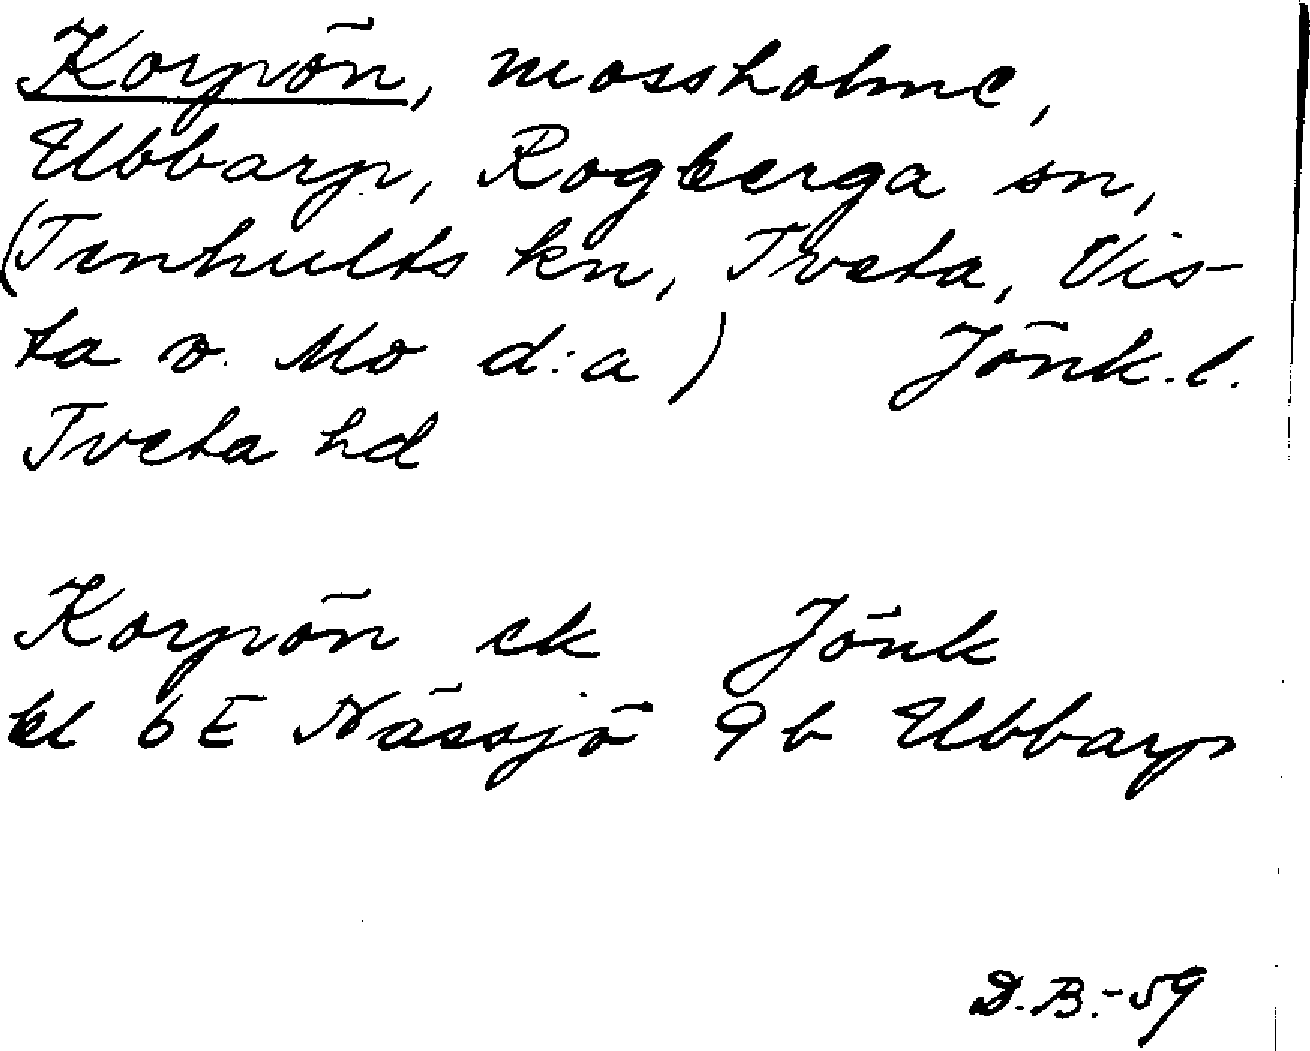 Korpön, mossholme,
Ubbarp, Rogberga sn,
(Tenhults kn, Tveta, Vis-
ta o. Mo d:a) Jönk. l.
Tveta hd
Korpön ek Jönk
bl 6E Nässjö 9b Ubbarp
D.B.-59